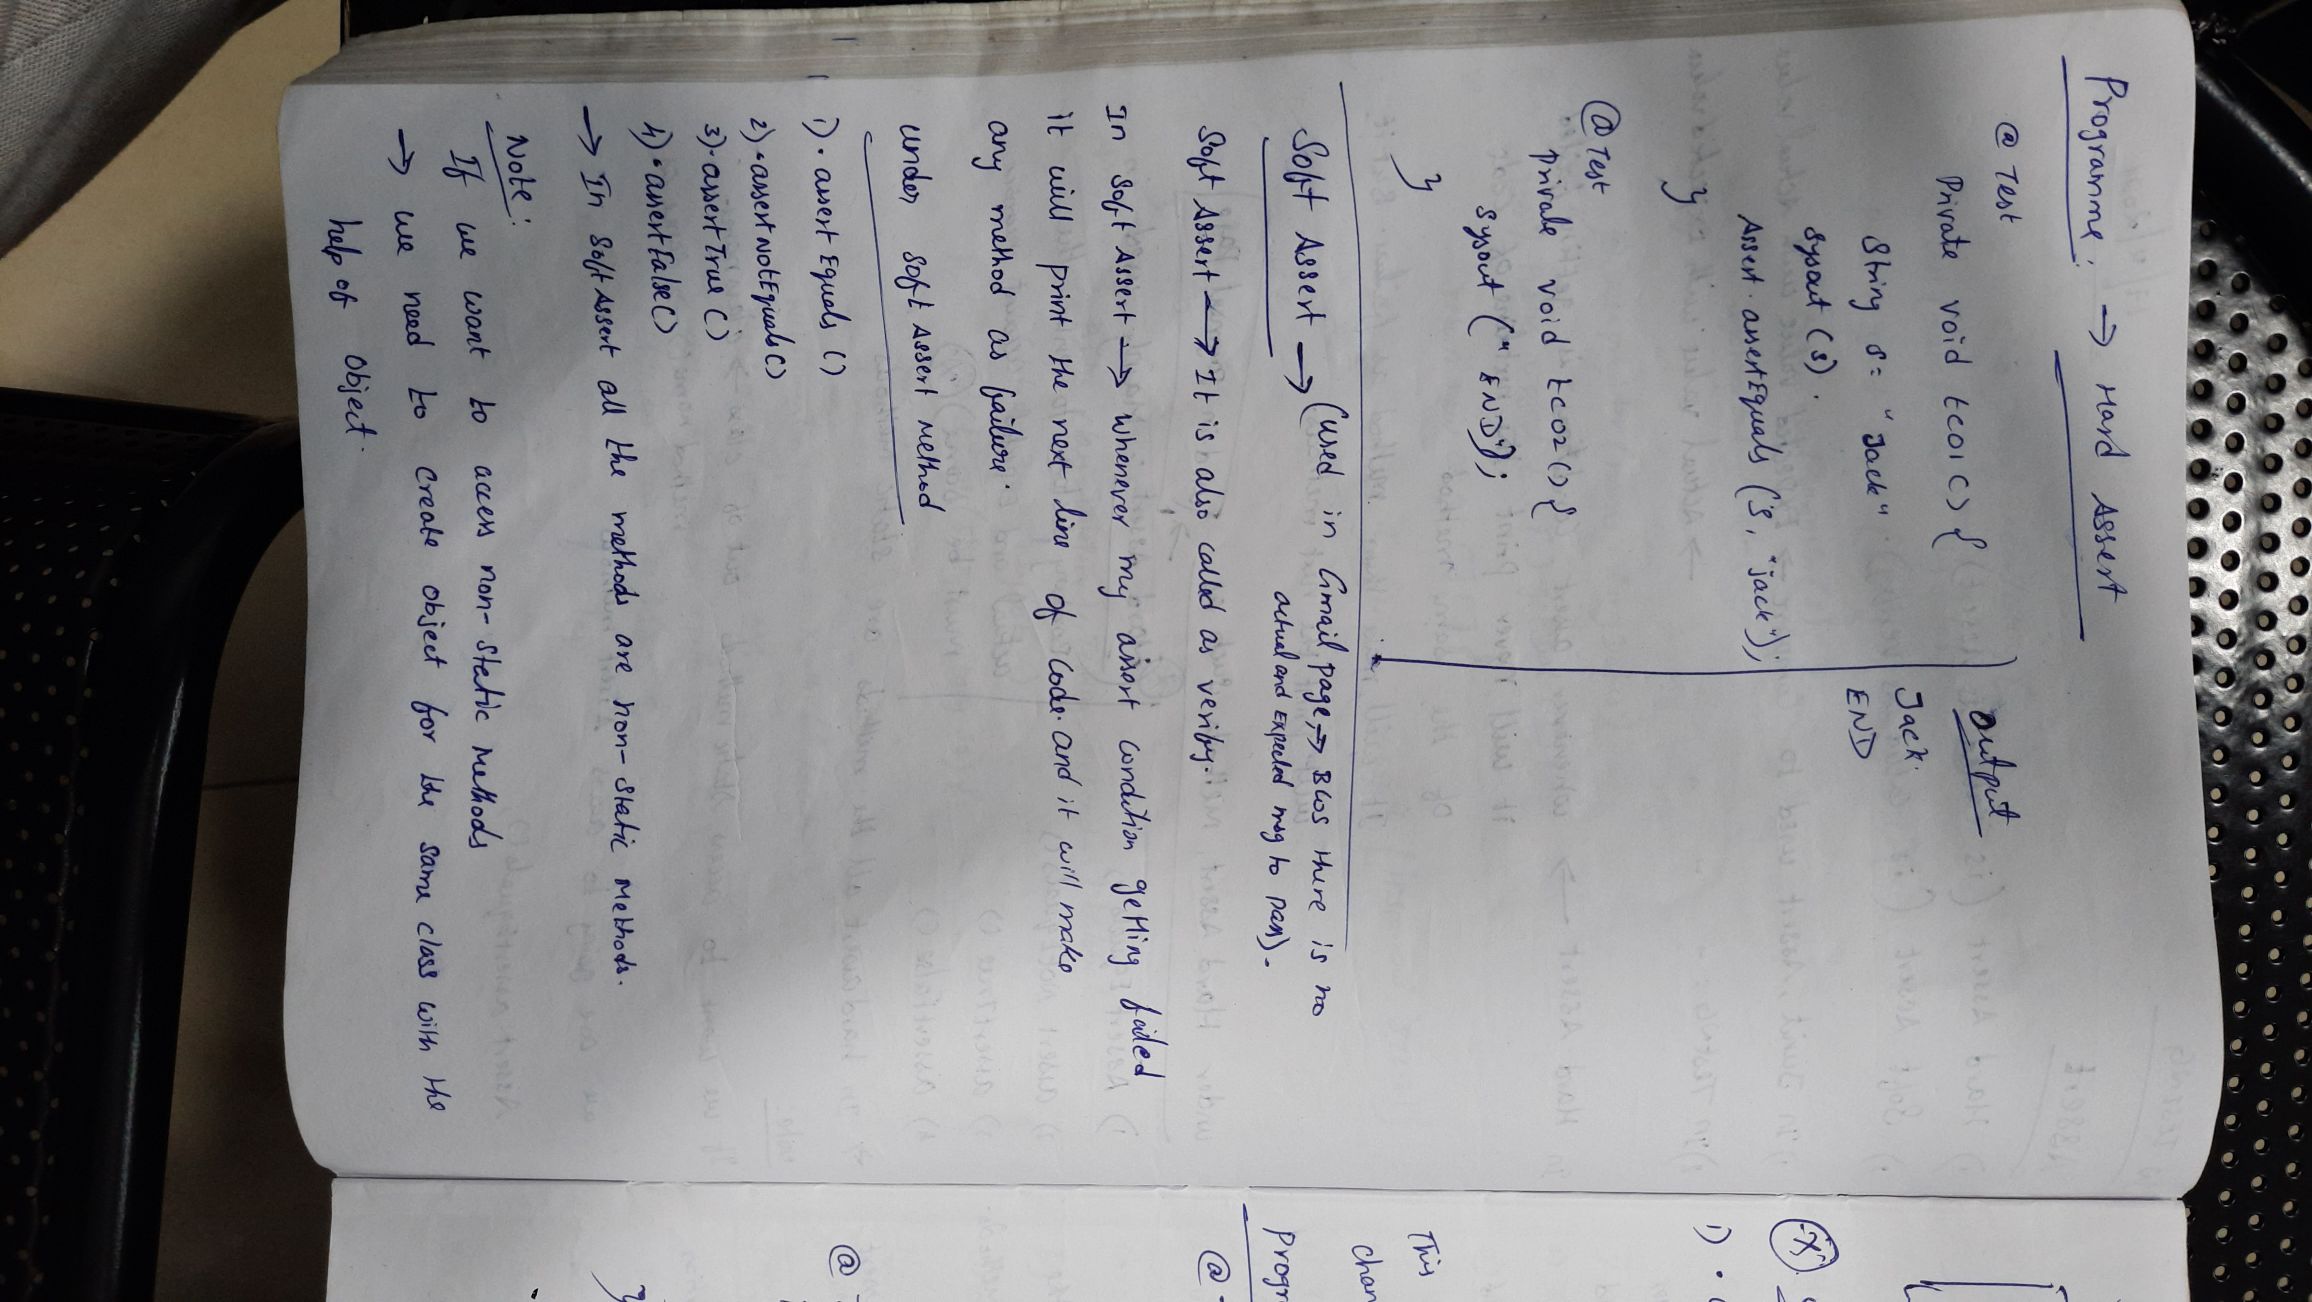 Programme: → Hard Assert
@Test
Private void tc01() {
String s = "Jack"
sysout(s).
Assert.assertEquals (s, "jack");
}
@Test
private void tc02() {
sysout ("END");
}
output
Jack.
END
Soft Assert → (used in Gmail page, → Bcos there is no
actual and Expected msg to pass).
Soft Assert → It is also called as verify.
In soft Assert → whenever my assert condition getting failed
it will print the next line of code. and it will make
any method as failure.
under soft Assert method
1) . assert Equals ()
2) . assertNotEquals()
3) . assertTrue()
4) . assertFalse()
→ In Soft Assert all the methods are non-static Methods.
Note:
If we want to access non-static methods
→ we need to create object for the same class with the
help of object.
This
chan
Progr
@
@
1) .
}